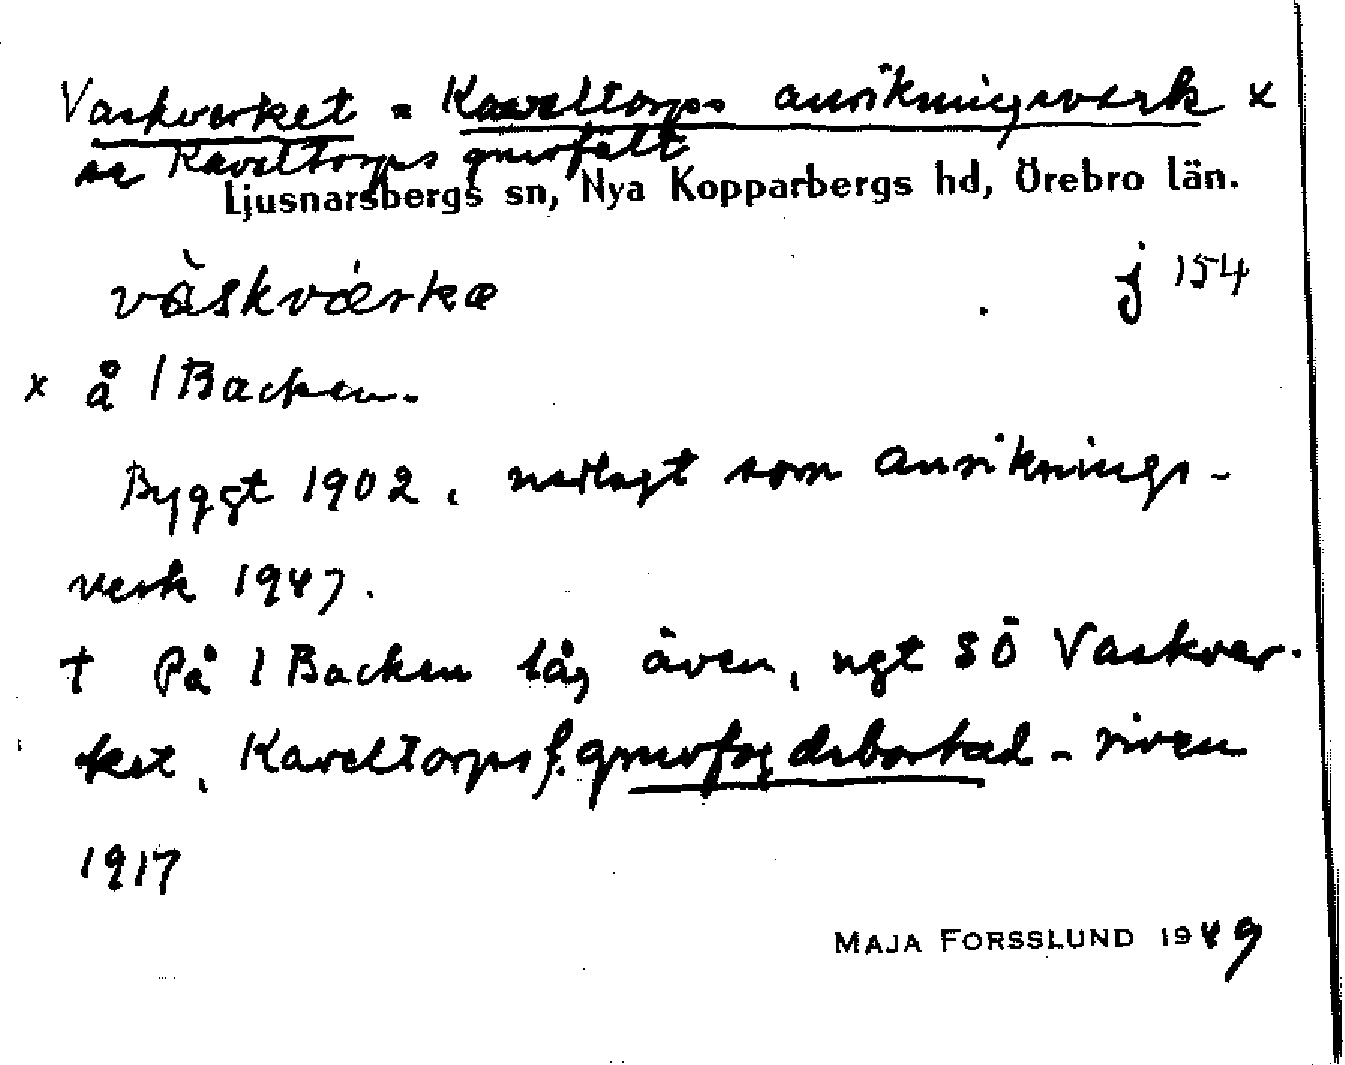 Vaskverket = Kaveltorps anrikningsverk x
se Kaveltorps gruvfält
Ljusnarsbergs sn, Nya Kopparbergs hd, Örebro län.
vàskvǽrkæ j 154
x å 1 Backen.
Byggt 1902, nedlagt som anriknings-
verk 1947.
† På 1 Backen låg även, ngt SÖ Vaskver-
ket, Kaveltorps f. gruvfogdebostad - riven
1917
MAJA FORSSLUND 1949